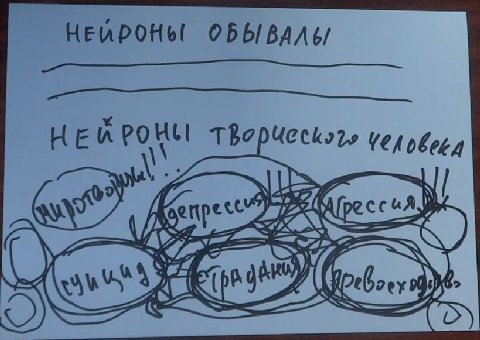 НЕЙРОНЫ ОБЫВАЛЫ
НЕЙРОНЫ ТВОРИССКОГО ЧЕЛОВЕКА
!!..
ДЕПРЕССИЯ!!! АГРЕССИЯ!!!
СУИЦИД СТРАДАНИЯ ПРЕВОСХОДСТВО